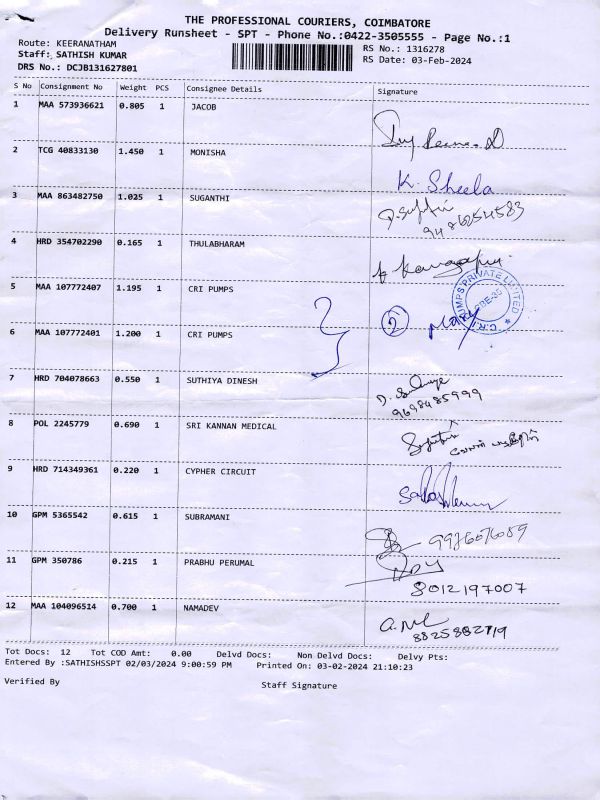 THE PROFESSIONAL COURIERS, COIMBATORE
Delivery Runsheet - SPT - Phone No.:0422-3505555 - Page No.:1
Route: KEERANATHAM
RS No.: 1316278
Staff: SATHISH KUMAR
RS Date: 03-Feb-2024
DRS No.: DCJB131627801
S No Consignment No Weight PCS Consignee Details Signature
1 MAA 573936621 0.805 1 JACOB
2 TCG 40833130 1.450 1 MONISHA
K. Sheela
3 MAA 863482750 1.025 1 SUGANTHI
9486254583
4 HRD 354702290 0.165 1 THULABHARAM
5 MAA 107772407 1.195 1 CRI PUMPS
2
6 MAA 107772401 1.200 1 CRI PUMPS
7 HRD 704078663 0.550 1 SUTHIYA DINESH
9698485999
8 POL 2245779 0.690 1 SRI KANNAN MEDICAL
9 HRD 714349361 0.220 1 CYPHER CIRCUIT
10 GPM 5365542 0.615 1 SUBRAMANI
11 GPM 350786 0.215 1 PRABHU PERUMAL
8012197007
12 MAA 104096514 0.700 1 NAMADEV
Tot Docs: 12 Tot COD Amt: 0.00 Delvd Docs: Non Delvd Docs: Delvy Pts:
Entered By :SATHISHSSPT 02/03/2024 9:00:59 PM Printed On: 03-02-2024 21:10:23
Verified By Staff Signature